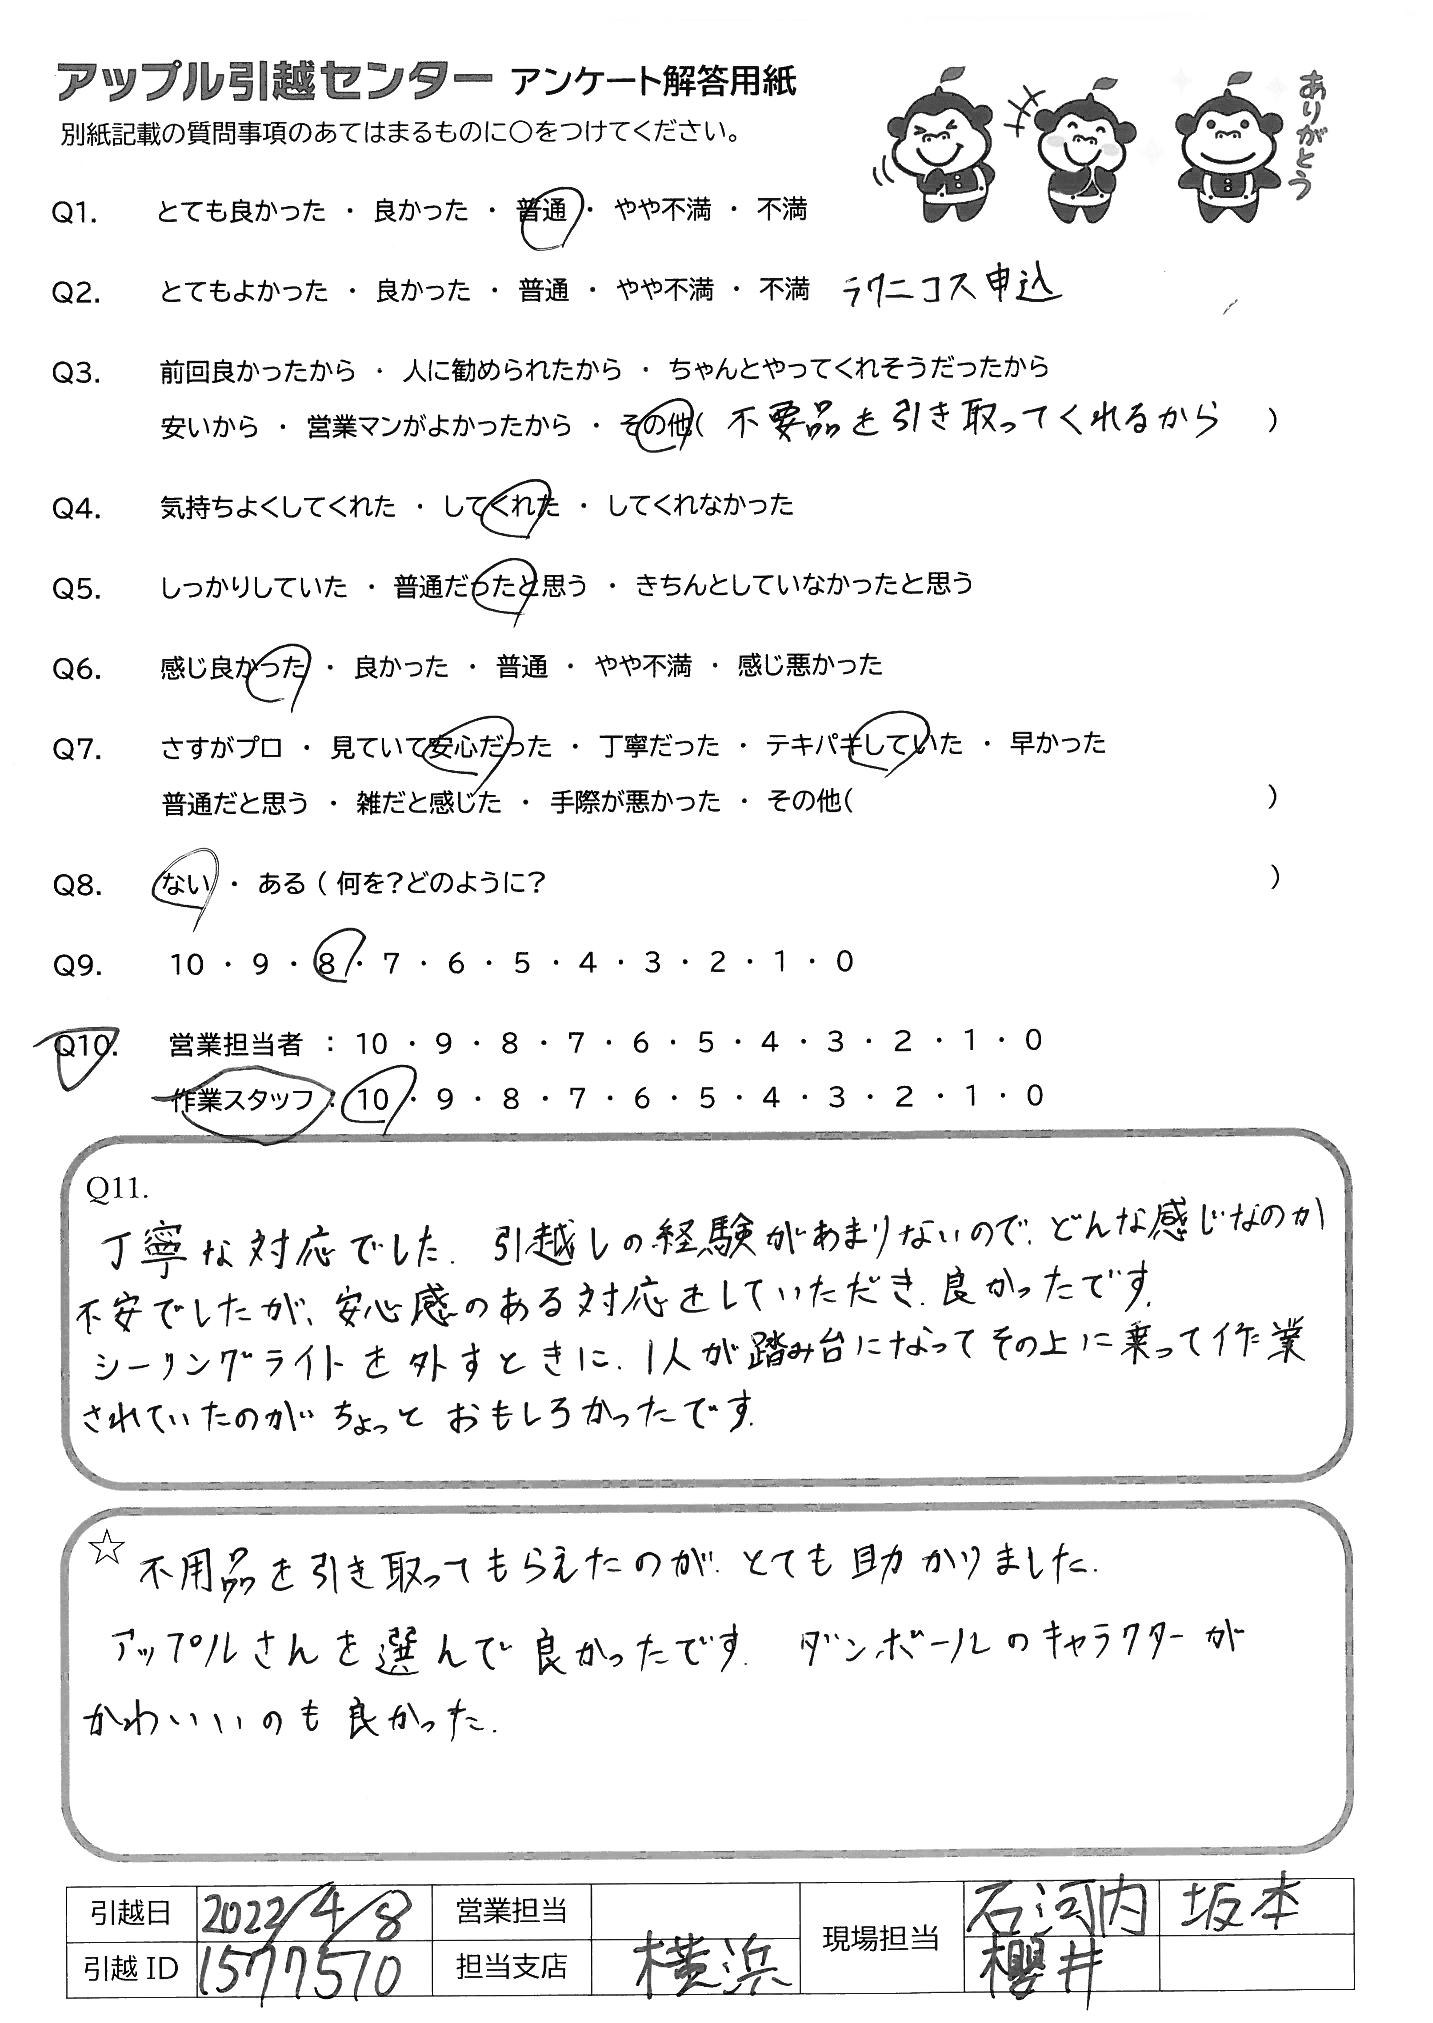 アップル引越センター アンケート解答用紙
ありがとう
別紙記載の質問事項のあてはまるものに○をつけてください。
Q1. とても良かった ・ 良かった ・ 普通 ・ やや不満 ・ 不満
Q2. とてもよかった ・ 良かった ・ 普通 ・ やや不満 ・ 不満 ラクニコス申込
Q3. 前回良かったから ・ 人に勧められたから ・ ちゃんとやってくれそうだったから
安いから ・ 営業マンがよかったから ・ その他( 不要品を引き取ってくれるから )
Q4. 気持ちよくしてくれた ・ してくれた ・ してくれなかった
Q5. しっかりしていた ・ 普通だったと思う ・ きちんとしていなかったと思う
Q6. 感じ良かった ・ 良かった ・ 普通 ・ やや不満 ・ 感じ悪かった
Q7. さすがプロ ・ 見ていて安心だった ・ 丁寧だった ・ テキパキしていた ・ 早かった
普通だと思う ・ 雑だと感じた ・ 手際が悪かった ・ その他( )
Q8. ない ・ ある ( 何を?どのように? )
Q9. 10 ・ 9 ・ 8 ・ 7 ・ 6 ・ 5 ・ 4 ・ 3 ・ 2 ・ 1 ・ 0
Q10. 営業担当者 : 10 ・ 9 ・ 8 ・ 7 ・ 6 ・ 5 ・ 4 ・ 3 ・ 2 ・ 1 ・ 0
作業スタッフ : 10 ・ 9 ・ 8 ・ 7 ・ 6 ・ 5 ・ 4 ・ 3 ・ 2 ・ 1 ・ 0
Q11.
丁寧な対応でした. 引越しの経験があまりないので、どんな感じなのか
不安でしたが、安心感のある対応をしていただき、良かったです.
シーリングライトを外すときに、1人が踏み台になってその上に乗って作業
されていたのがちょっとおもしろかったです.
☆ 不用品を引き取ってもらえたのが、とても助かりました.
アップルさんを選んで良かったです. ダンボールのキャラクターが
かわいいのも良かった.
引越日 2022/4/8 営業担当 現場担当 石河内 坂本
引越ID 1577570 担当支店 横浜 櫻井